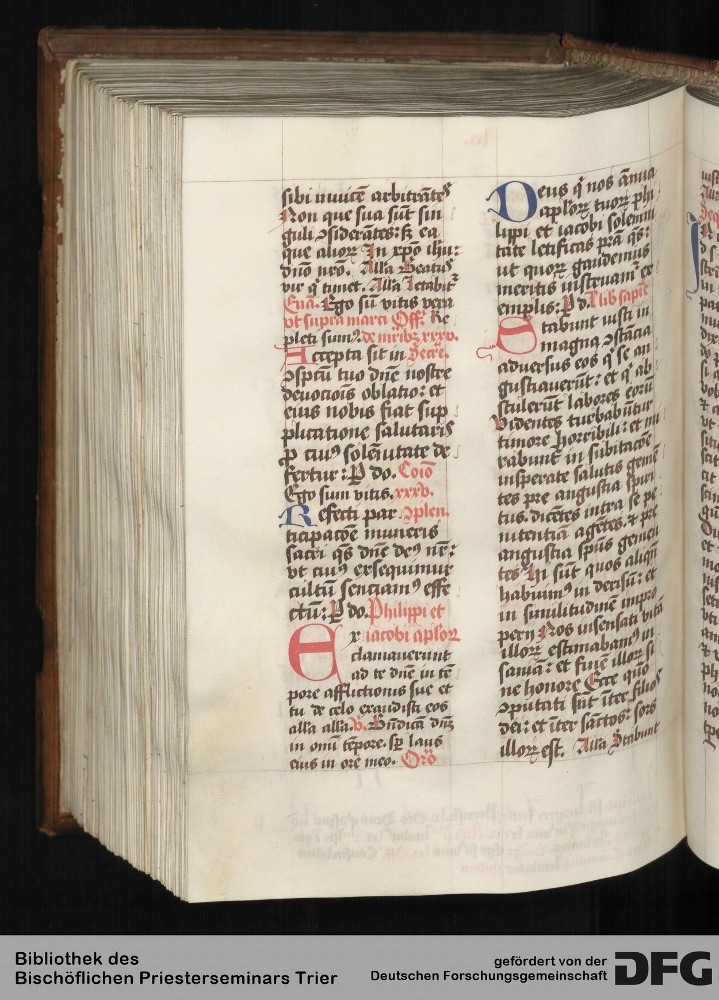 sibi inuicē arbitrātes
Non que sua sūt sin
guli ꝯsiderātes: sꝫ ea
que alioꝝ In xp̄o ih̄u:
dn̄o nr̄o. All'a Beatus
vir q̄ timet. All'a
Euā. Ego sū vitis vera
vt supra marci Off. Re
pleti sumꝰ. xxxv.
Accepta sit in Secre.
ꝯspc̄u tuo dn̄e nostre
deuociōis oblatio: et
eius nobis fiat sup
plicatione salutaris
ꝓ cuiꝰ solēnitate de
fertur: P do. Coīo
Ego sum vitis. xxxv.
Refecti par ꝯplen.
ticipacōe muneris
sacri qs̄ dn̄e deꝰ nr̄:
vt cuiꝰ exsequimur
cultū senciamꝰ effe
ctū: P do. Philippi et
Ex iacobi ap̄loꝝ
clamauerunt
ad te dn̄e in tē
pore afflictionis sue et
tu de celo exaudisti eos
all'a all'a. V. Bn̄dicā dn̄ꝫ
in omī tēpore. sp̄ laus
eius in ore meo. Orō
Deus q̄ nos ānua
ap̄loꝝ tuoꝝ phi
lippi et iacobi solemni
tate letificas pr̄a qs̄:
ut quoꝝ gaudemus
meritis instruam̄ ex
emplis: P do. lib sapiē
Stabunt iusti in
magna ꝯstācia
aduersus eos q̄ se an
gustiauerūt: et q̄ ab
stulerūt labores eorū
Videntes turbabūtur
timore horribili: et mi
rabunt̄ in subitacōe
insperate salutis gemē
tes pre angustia spiri
tus. dicētes intra se pe
nitentiā agētes. ⁊ pre
angustia sp̄us gemen
tes Hi sūt quos aliqn̄
habuimꝰ in derisū: et
in similitudinē impro
perij Nos insensati vitā
illoꝝ estimabamꝰ in
saniā: et finē illoꝝ si
ne honore Ecce quō
ꝯputati sūt īter filios
dei: et īter sāctos: sors
illoꝝ est. All'a Stabunt
Bibliothek des
Bischöflichen Priesterseminars Trier
gefördert von der
Deutschen Forschungsgemeinschaft
DFG